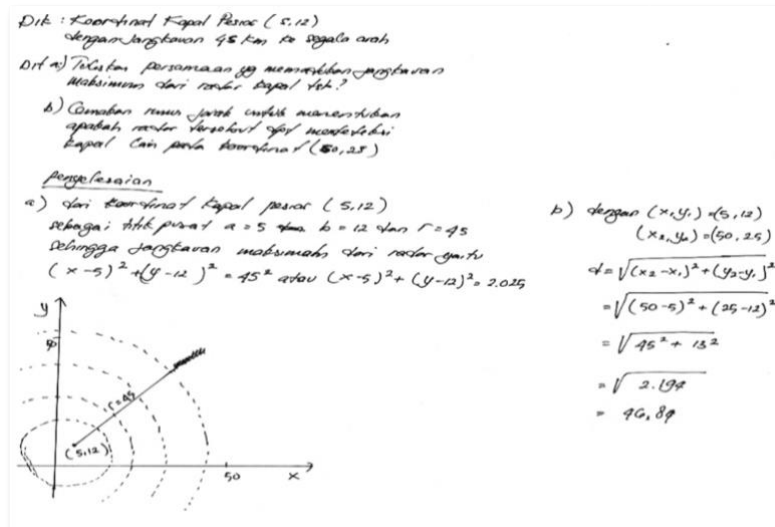 Dik : Koordinat Kapal Pesiar (5,12)
dengan jangkauan 45 km ke segala arah
Dit a) Tuliskan persamaan yg memastikan jangkauan
maksimum dari radar kapal tsb?
b) Gunakan rumus jarak untuk menentukan
apakah radar tersebut dpt mendeteksi
kapal lain pada koordinat (50,25)
Penyelesaian
a) dari koordinat kapal pesiar (5,12)
sebagai titik pusat a = 5 b = 12 dan r = 45
Sehingga jangkauan maksimum dari radar yaitu
(x-5)² + (y-12)² = 45² atau (x-5)² + (y-12)² = 2.025
y
50
r = 45
(5,12)
50
x
b) dengan (x₁y₁) = (5,12)
(x₂,y₂) = (50,25)
d = √(x₂-x₁)² + (y₂-y₁)²
= √(50-5)² + (25-12)²
= √45² + 13²
= √2.194
= 46,84